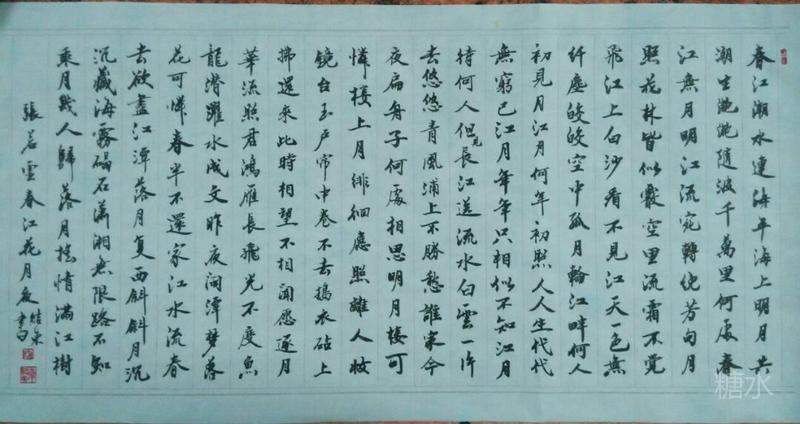 春江潮水連海平海上明月共
潮生灔灔隨波千萬里何處春
江無月明江流宛轉绕芳甸月
照花林皆似霰空里流霜不觉
飛江上白沙看不見江天一色無
纤塵皎皎空中孤月輪江畔何人
初見月江月何年初照人人生代代
無窮已江月年年只相似不知江月
待何人但見長江送流水白雲一片
去悠悠青風浦上不勝愁誰家今
夜扁舟子何處相思明月樓可
憐樓上月徘徊應照離人妝
镜台玉户帘中卷不去搗衣砧上
拂還來此時相望不相聞愿逐月
華流照君鴻雁長飛光不度魚
龍潜躍水成文昨夜闲潭梦落
花可憐春半不還家江水流春
去欲盡江潭落月复西斜斜月沉
沉藏海霧碣石瀟湘無限路不知
乘月幾人歸落月摇情满江樹
張若虛春江花月夜
糖水